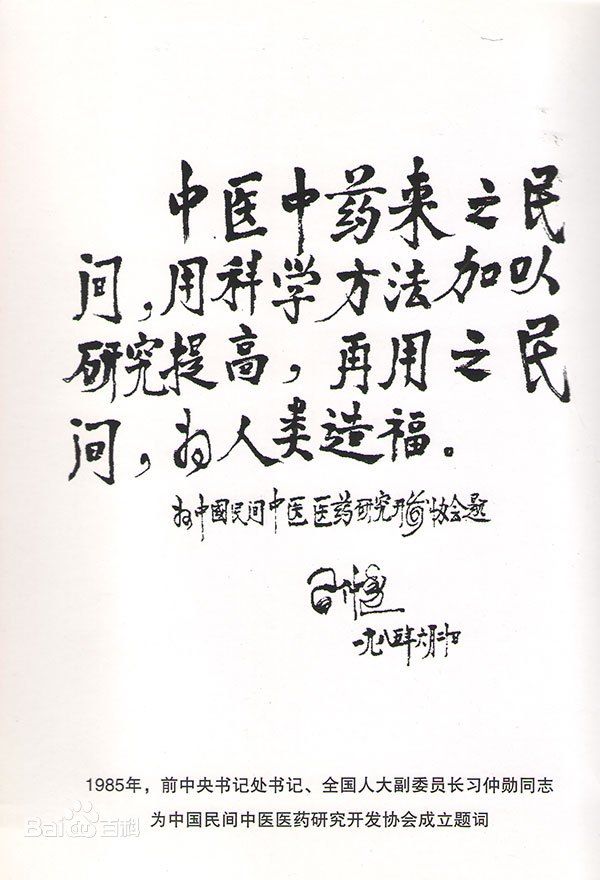 中医中药来之民
间，用科学方法加以
研究提高，再用之民
间，为人类造福。
为中國民间中医医药研究开发协会题
习仲勋
一九八五年六月二十日
1985年，前中央书记处书记、全国人大副委员长习仲勋同志
为中国民间中医医药研究开发协会成立题词
Bai百科